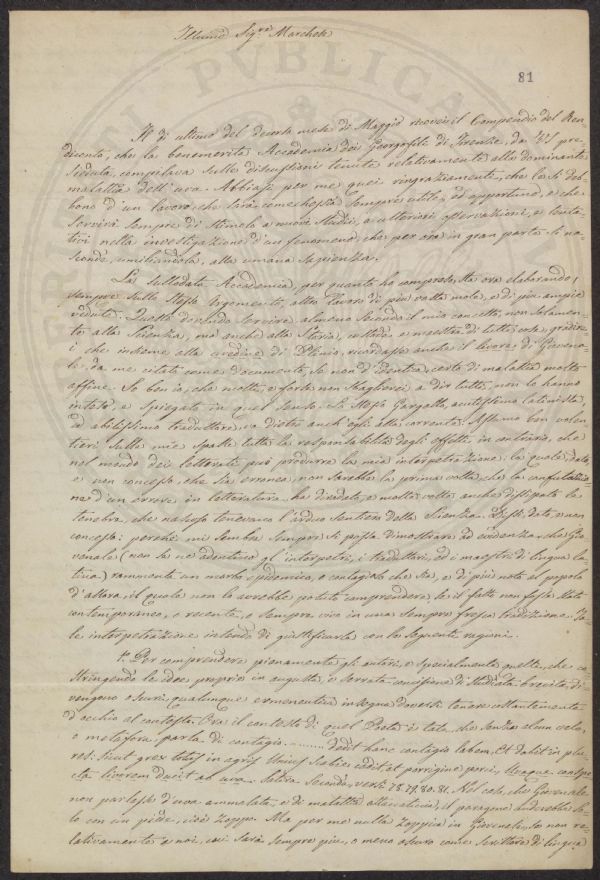 Illmo Sigre Marchese
81
Il dì ultimo del decorso mese di Maggio ricevei il Compendio del Ren-
diconto, che la benemerita Accademia dei Georgofili di Firenze, da VS pre-
sieduta, compilava sulle discussioni tenute relativamente alla dominante
malattia dell'uva. Abbiasi per me quei ringraziamenti, che la si deb-
bono d'un lavoro, che sarà sempre utile, ed opportuno, e che
servirà sempre di stimolo a nuovi studii, a ulteriori osservazioni, e tenta-
tivi nella investigazione d'un fenomeno, che per ora in gran parte si na-
sconde, umiliandola, alla umana sapienza.
La sullodata Accademia, per quanto ho compreso, sta ora elaborando,
sempre sullo stesso argomento, altro lavoro di più vasta mole, e di più ampie
vedute. Questo dovendo servire, almeno secondo il mio concetto, non solamen-
te alla Scienza, ma anche alla Storia, custode e maestra di tutte cose, gradirei
che insieme alla uredine di Plinio, ricordasse anche il livore di Giovena-
le, da me citato come documento, se non d'identica, certo di malattia molto
affine. So ben io, che molti, e forse non sbaglierei a dir tutti, non lo hanno
inteso, e spiegato in quel senso. Lo stesso Gargallo, acutissimo latinista,
ed abilissimo traduttore, va dietro anch'egli alla corrente. Assumo ben volen-
tieri sulle mie spalle tutta la responsabilità degli effetti in contrario, che
nel mondo dei letterati può produrre la mia interpetrazione, la quale dato
e non concesso, che sia erronea, non sarebbe la prima volta che la confutazio-
ne d'un errore in letteratura ha diradate, e molte volte anche dissipate le
tenebre, che nascoso tenevano l'arduo sentiero della Scienza. Dissi, dato e non
concesso: perchè mi sembra sempre si possa dimostrare ad evidenza che Gio-
venale (non se ne adontino gl'interpetri, i traduttori, ed i maestri di lingua la-
tina) rammenta un morbo epidemico, o contagioso che sia, e di più noto al popolo
d'allora, il quale non lo avrebbe potuto comprendere, se il fatto non fosse stato
contemporaneo, o recente, o sempre vivo in una sempre fresca tradizione. Ta-
le interpetrazione intendo di giustificarla con le seguenti ragioni.
1.° Per comprendere pienamente gli autori, e specialmente quelli, che co-
stringendo le idee proprie in angusta, e serrata concisione di studiata brevità, di-
vengono oscuri, qualunque ermeneutica insegna doversi tenere costantemente
d'occhio al contesto. Ora il contesto di quel Poeta è tale, che senza alcun velo,
o metafora parla di contagio. ........ Dedit hanc contagio labem, Et dabit in plu-
res: sicut grex totus in agris Unius scabie cadit et porrigine porci, Uvaque conspe-
cta livorem ducit ab uva. Satira Seconda, versi 78. 79. 80. 81. Nel caso, che Giovenale
non parlasse d'uva ammalata, e di malattia attaccaticcia, il paragone anderebbe so-
lo con un piede, cioè zoppo. Ma per me nulla zoppica in Giovenale, se non re-
lativamente a noi, cui sarà sempre più, o meno oscuro come scrittore di lingua